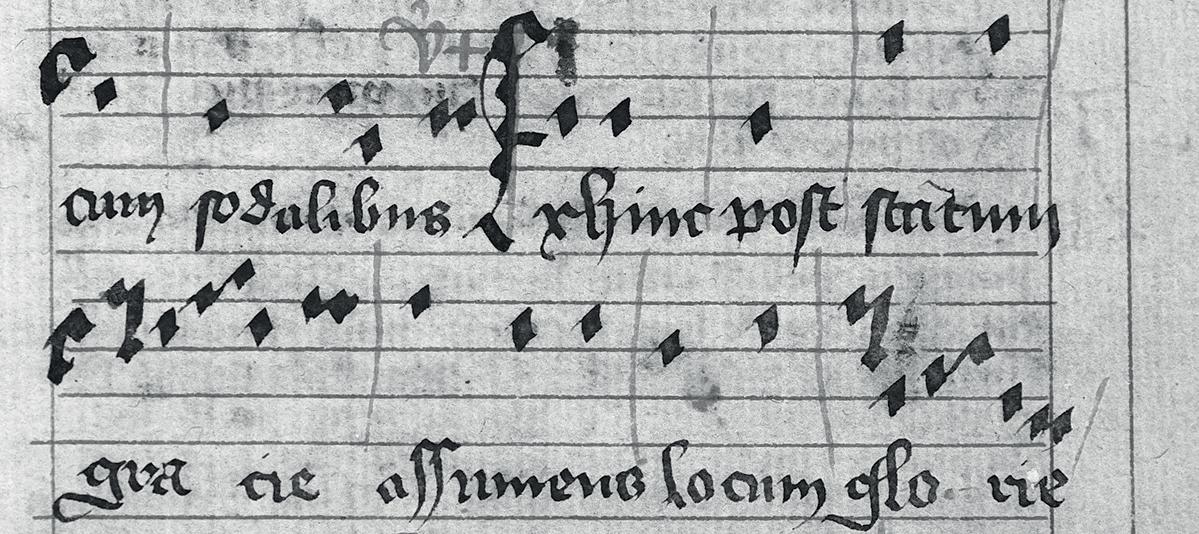 cum sodalibus Exhinc post statum
gra cie assumens locum glo rie